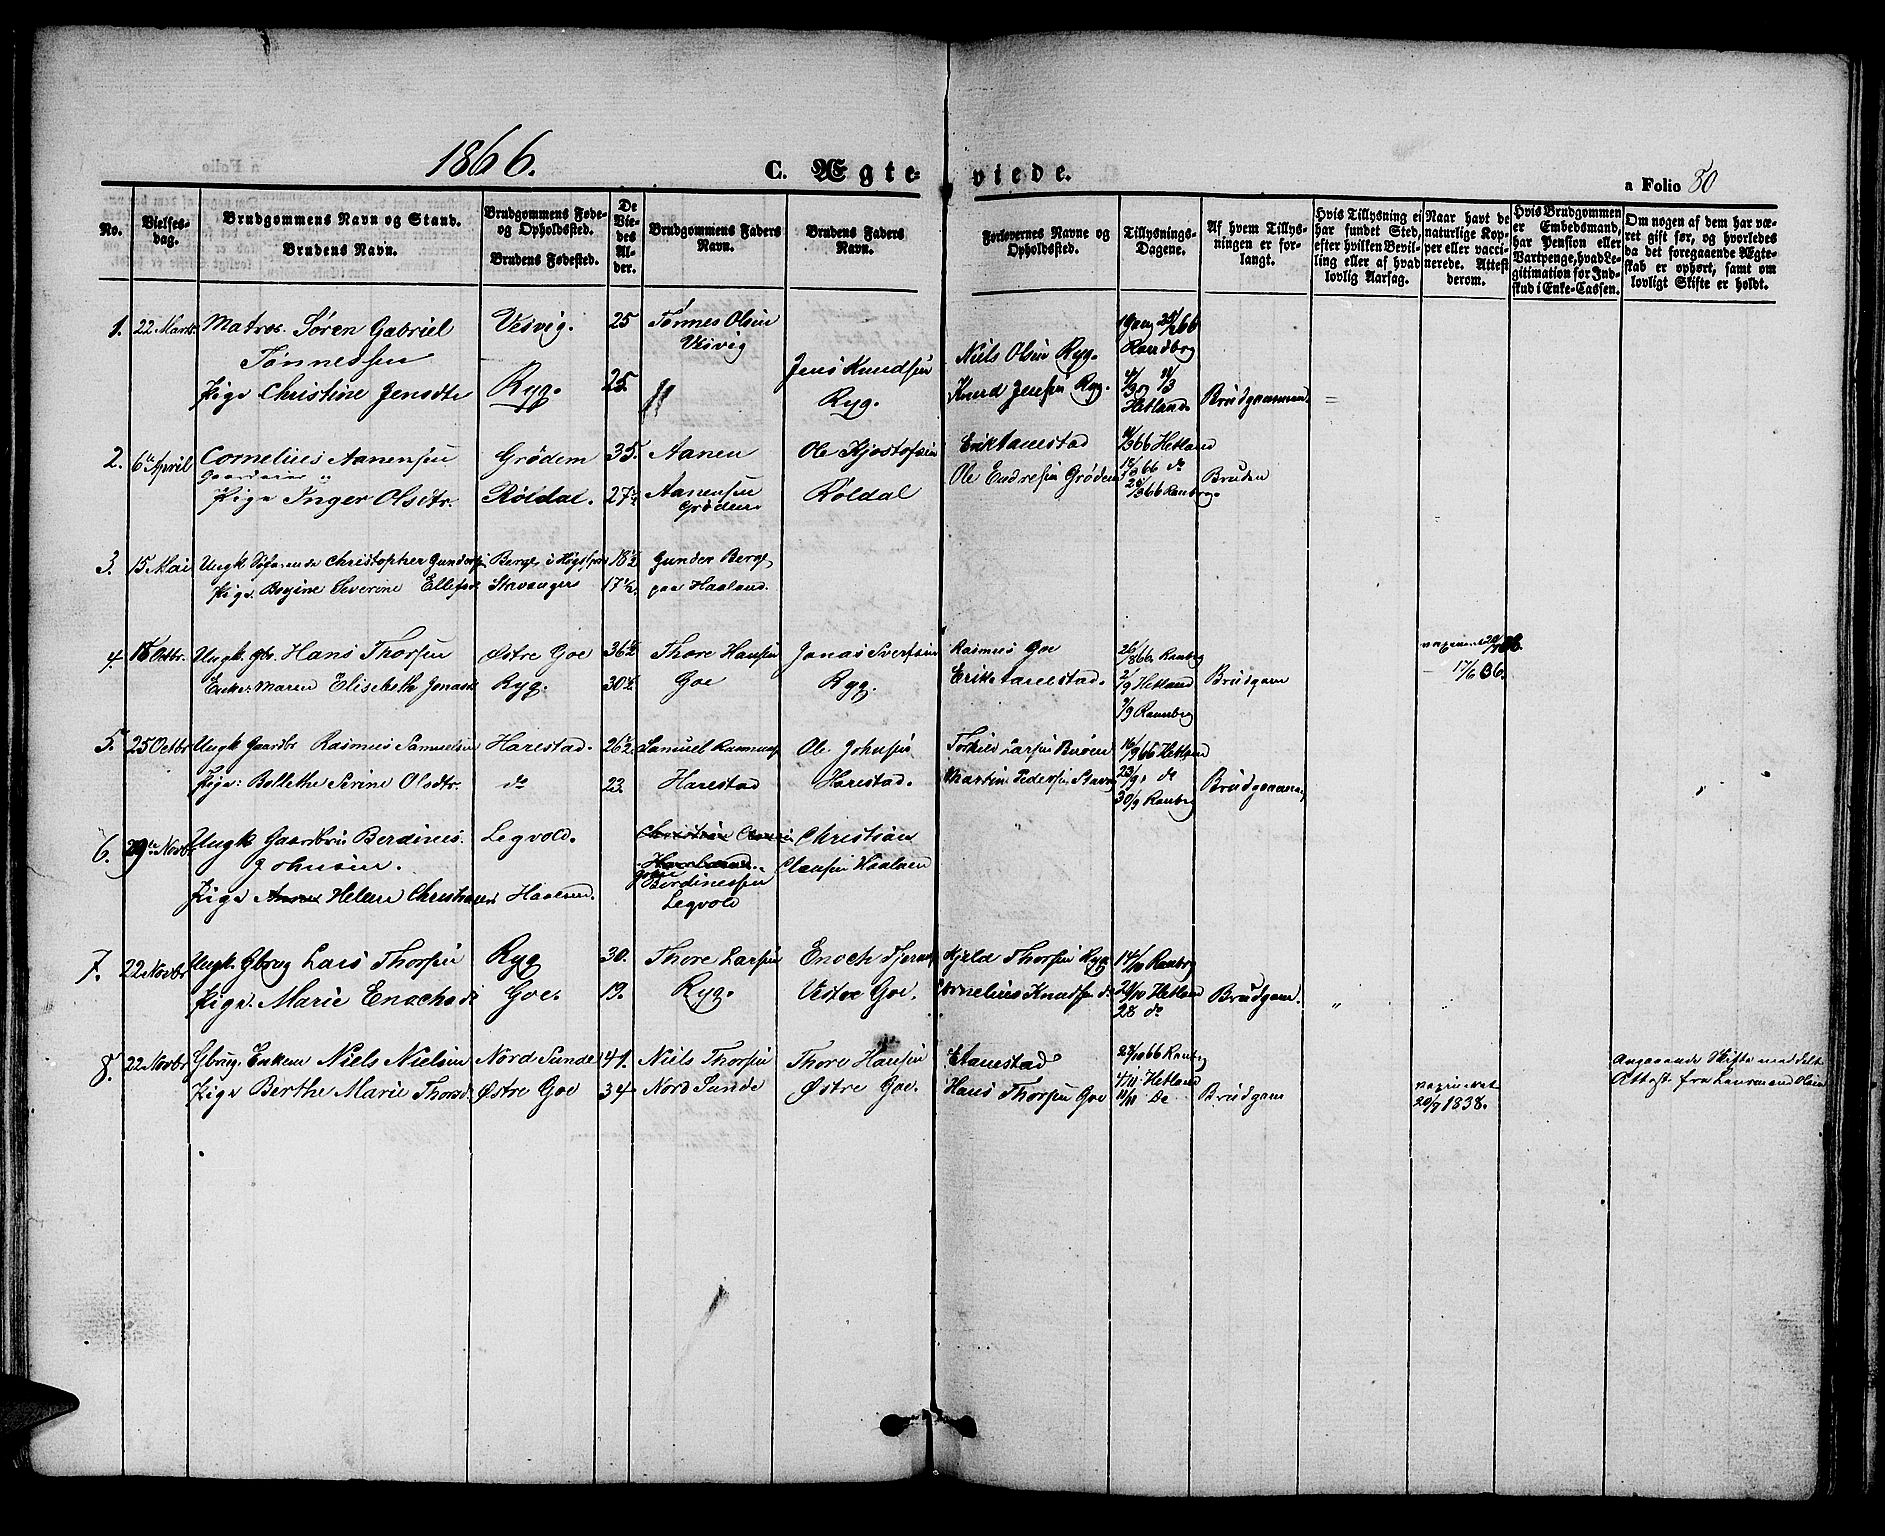 1866.
C. Ægteviede.
a Folio 80
No.
Vielses-dag.
Brudgommens Navn og Stand.
Brudens Navn.
Brudgommens Føde- og Opholdssted.
Brudens Fødested.
De Viedes Alder.
Brudgommens Faders Navn.
Brudens Faders Navn.
Forlovernes Navne og Opholdssted.
Tillysnings-Dagene.
Af hvem Tillysningen er forlangt.
Hvis Tillysning ei har fundet Sted, efter hvilken Bevilling eller af hvad lovlig Aarsag.
Naar havt de naturlige Kopper eller vaccinerede. Attest derom.
Hvis Brudgommen er Embedsmand, har Pension eller Vartpenge, hvad Legitimation for Indskud i Enke-Cassen.
Om nogen af dem har været gift før, og hvorledes da det foregaaende Ægteskab er ophørt, samt om lovligt Skifte er holdt.
1. 22 Marts Matros. Søren Gabriel Vesvig. 25 Tønnes Olsen
Tønnessen Vesvig Jens Knudsen Niels Olsen Ryg. Randbrg
Pige Christine Jensdtr Ryg. 25. Ryg. Knud Jensen Ryg. Hetland Brudgommen.
2. 6te April Cornelius Aanensen Grødem 35. Aanen Ole Kjostofsen Erik Tanestad 11/3 66 Hetland
Gaardmand
Pige Inger Olsdtr. Røldal. 27 1/2 Aanensen Røldal Ole Endresen Grødem 18/3 66 do Bruden
Grødem 25/3 66 Ranbrg.
3. 15 Mai Ungk Christopher Gunders. Berge i Høgsfjord 18 1/2 Gunder Berge
Pige. Severine Ellefsd. Stavanger 17 1/2. paa Haaland.
4. 18 Octbr. Ungk. Gbr. Hans Thorsen Østre Goe 36 1/2 Thore Hansen Jonas Svensen Rasmus Goe 26/8 66 Ranbrg
Enke: Maren Elisebethe Jonasd. Ryg. 30 1/2 Goe Ryg. Erik Tanestad. 2/9 Hetland Brudgom 17/6 36.
9/9 Ranebrg
5. 25 Octbr Ungk Gaardbr Rasmus Samuelsen Harestad. 26 1/2 Samuel Rasmuss. Ole Johnsen Torkild Larsen Buøen 16/9 66 Hetland
Pige: Bollethe Serine Olsdtr. do 23. Harestad Harestad. Martin Pedersen Stavng 23/9. do Brudgommen
30/9 Ranbrg
6. 29de Novbr Ungk Gaardbr. Berdines Legvold. Christian Clausen Christian
Johnsen. Haaland. John Clausen Haaland
Pige Anne Helene Christiansd. Haaland. Berdinessen
Legvold
7. 22 Novbr Ungk. Gbrug Lars Thorsen Ryg 30. Thore Larsen Enoch Kjeld Thorsen Ryg 14/10 Ranbrg
Pige. Marie Enochsd. Goe. 19. Ryg. Vestre Goe. Cornelius Knudsen do 21/10 Hetland Brudgom.
28 do
8. 22 Novbr Gbrug. Enkem Niels Nielsen Nord Sunde 41. Niels Thorsen Thore Hansen E Tanestad 28/10 66 Ranbrg Angaaende Skifte
Pige Berthe Marie Thorsd. Østre Goe 34 Nord Sunde Østre Goe. Hans Thorsen Goe 4/11 Hetland Attest fra Lensmand Olsen
11/11 do Brudgom vaxineret 20/7 1838.